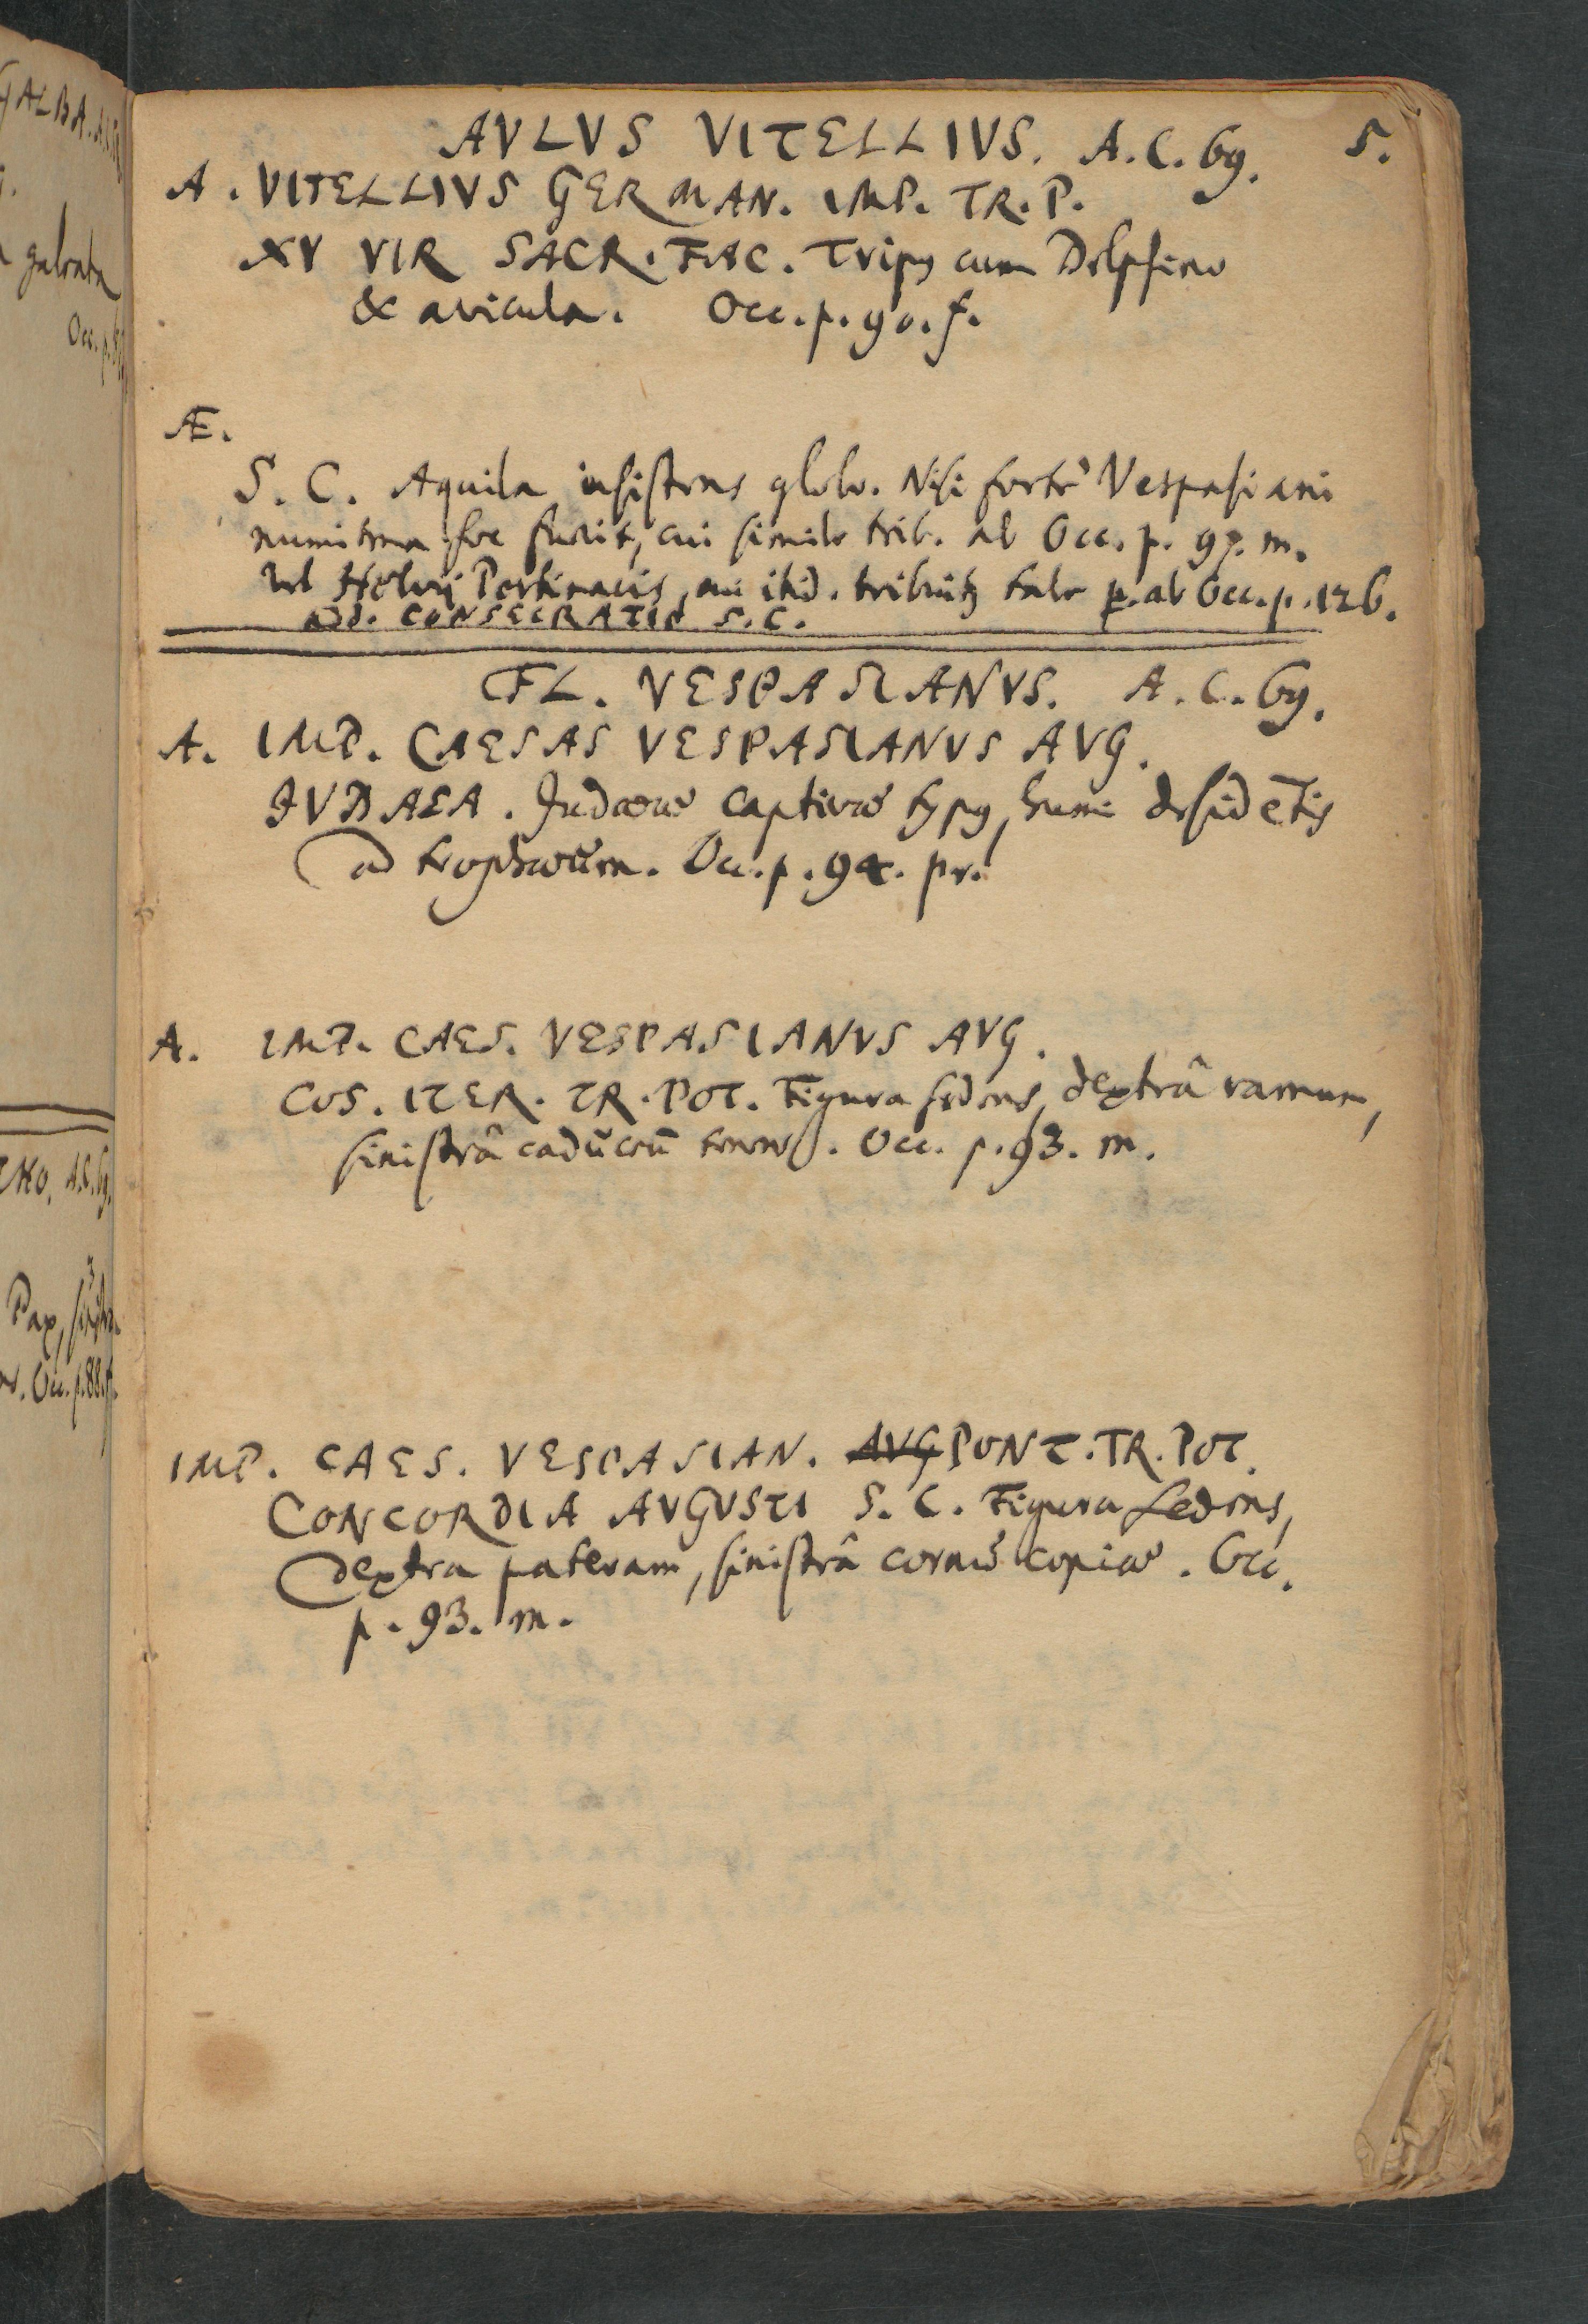 AVLVS VITELLIVS. A.C. 69. 5.
A. VITELLIVS GERMAN. IMP. TR. P.
XV VIR SACR. FAC. Tripus cum Delphino
& avicula. Occ. p. 90. f.
Æ.
S. C. Aquila insistens globo. Nisi fortè Vespasiani
numisma hoc fuerit, cui simile trib. ab Occ. p. 97. m.
vel Helvij Pertinacis, cui itid. tribuitʒ tale p. ab Occ. p. 126.
add. CONSECRATIO S. C.
FL. VESPASIANVS. A. C. 69.
A. IMP. CAESAS VESPASIANVS AVG.
IVDAEA. Judaeae captivae typus, humi desidētis
ad trophaeum. Occ. p. 94. pr.
A. IMP. CAES. VESPASIANVS AVG.
COS. ITER. TR. POT. Figura sedens, dextrâ ramum,
sinistrâ caduceū tenens. Occ. p. 93. m.
IMP. CAES. VESPASIAN. AVG PONT. TR. POT.
CONCORDIA AVGVSTI S. C. Figura sedens,
dextra pateram, sinistrâ cornu copiae. Occ.
p. 93. m.
GALBA.
galeata
Occ. p.
Pax,
Occ. p. 88. f.